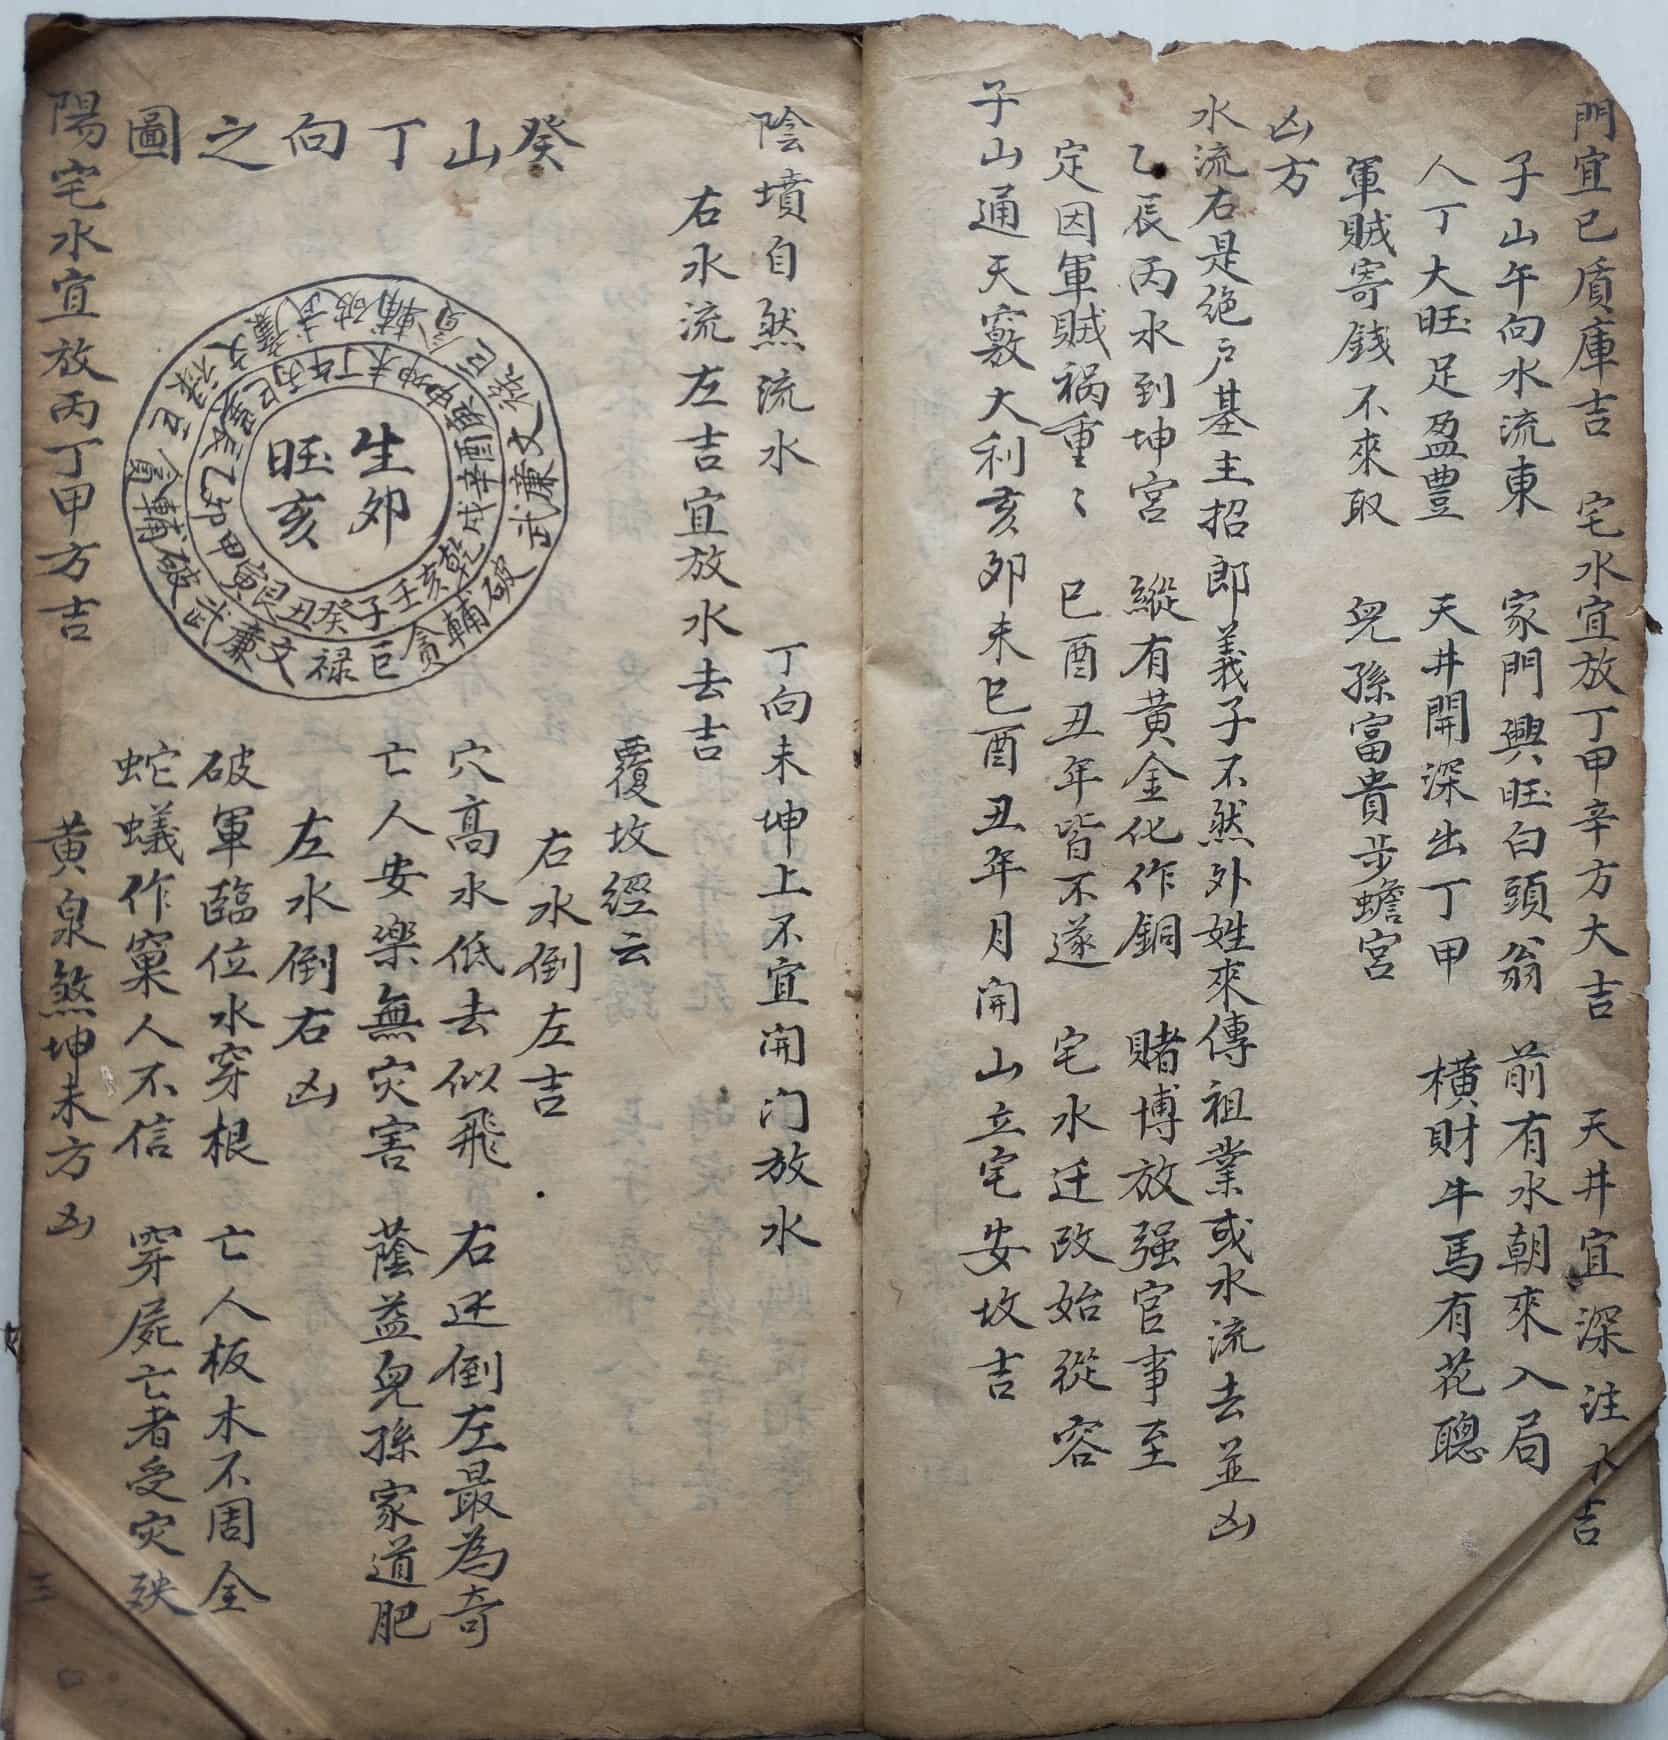 門宜巳質庫吉　宅水宜放丁甲辛方大吉　天井宜深注水吉
子山午向水流東　家門興旺白頭翁　前有水朝來入局
人丁大旺足盈豐　天井開深出丁甲　橫財牛馬有花聰
軍賊寄錢不來取　兒孫富貴步蟾宮
凶方
水流右是絕戶基主招郎義子不然外姓來傳祖業或水流去並凶
乙辰丙水到坤宮　縱有黃金化作銅　賭博放强官事至
定因軍賊禍重〻　巳酉丑年皆不遂　宅水迁改始從容
子山通天竅大利亥夘未巳酉丑年月開山立宅安坟吉
陰墳自然流水　丁向未坤上不宜開门放水
右水流左吉宜放水去吉
覆坟經云
右水倒左吉
穴高水低去似飛　右迋倒左最為奇
亡人安楽無灾害　蔭益兒孫家道肥
左水倒右凶
破軍臨位水穿根　亡人板木不周全
蛇蟻作窠人不信　穿屍亡者受灾殃
癸山丁向之圖
生夘
旺亥
子癸丑艮寅甲夘乙辰巽巳丙午丁未坤申庚酉辛戌乾亥壬
陽宅水宜放丙丁甲方吉　黃泉煞坤未方凶